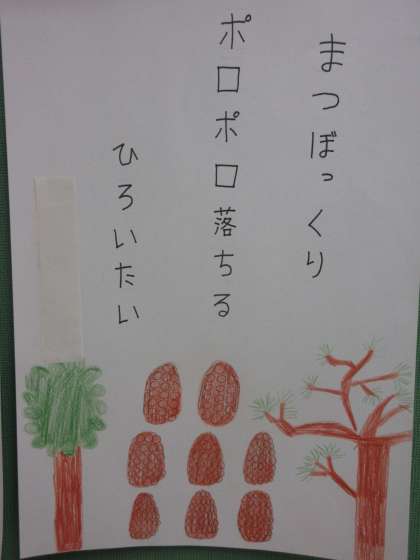 まつぼっくり
ポロポロ落ちる
ひろいたい